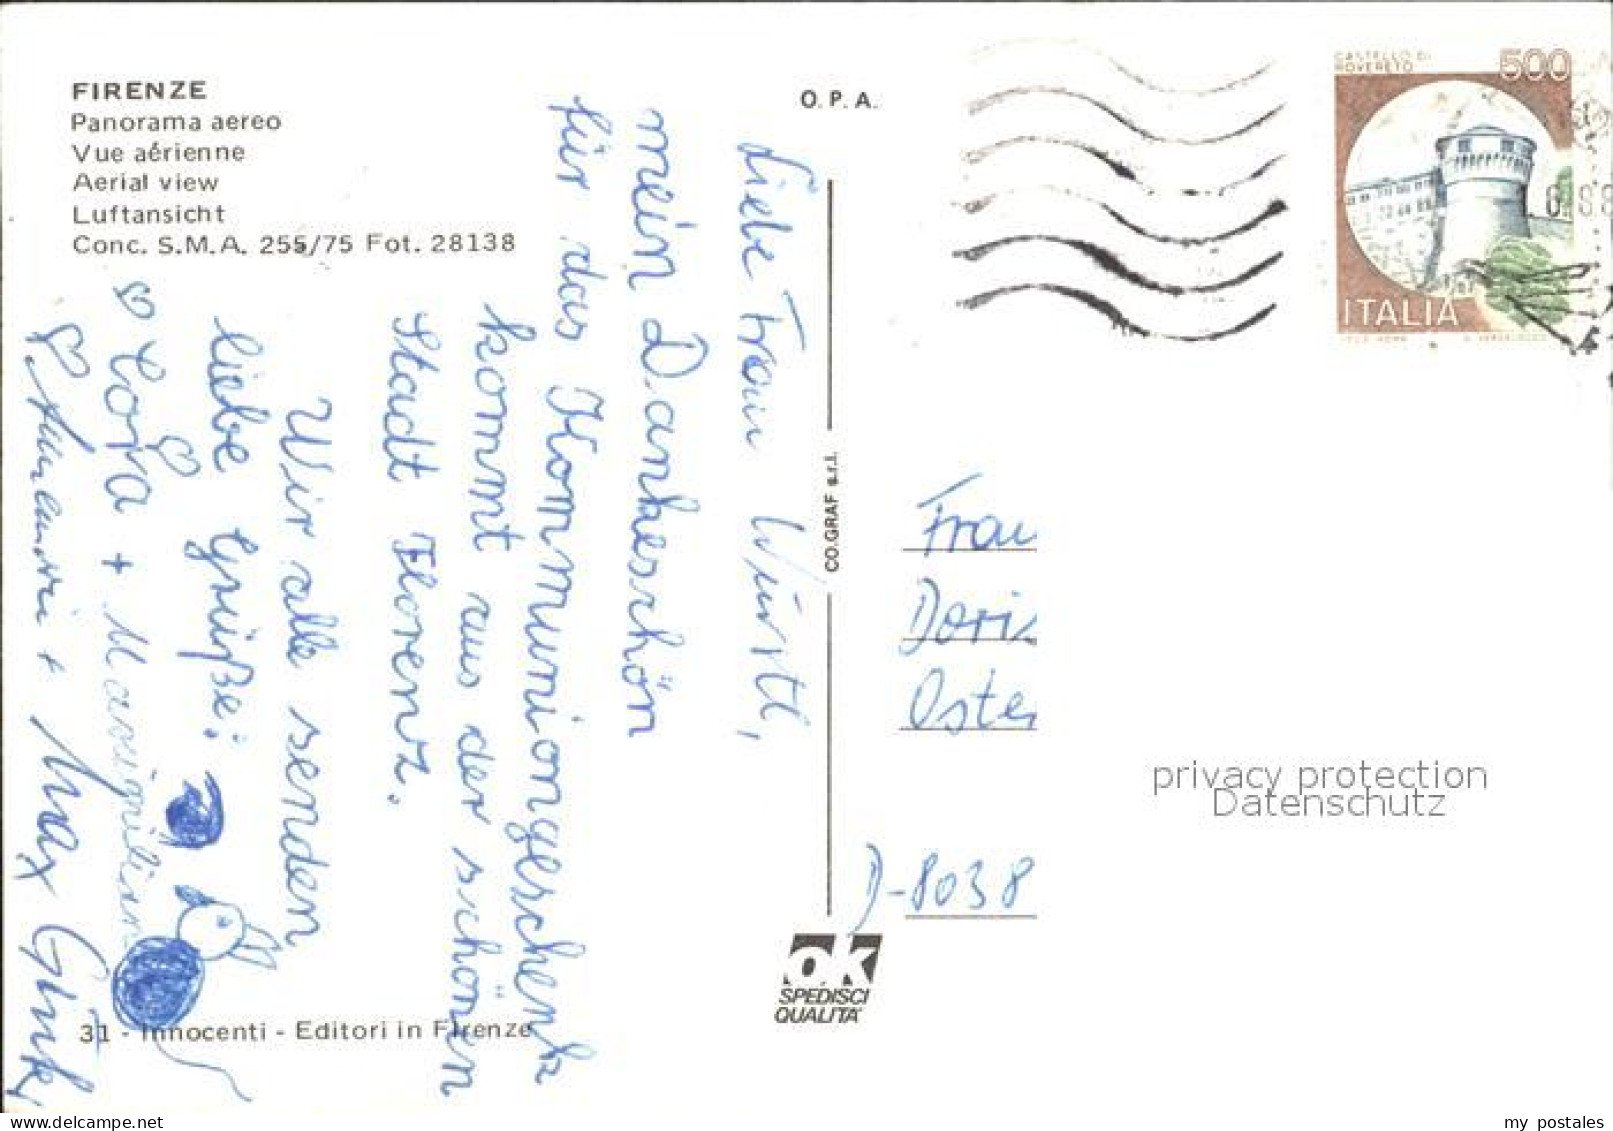 FIRENZE
Panorama aereo
Vue aérienne
Aerial view
Luftansicht
Conc. S.M.A. 255/75 Fot. 28138
O.P.A.
CASTELLO DI
ROVERETO
500
ITALIA
Liebe Frau Würstl,
mein Dankeschön
für das Kommuniongeschenk
kommt aus der schönen
Stadt Florenz.
Wir alle senden
liebe Grüße:
Cora + Maximilian
+ Max
CO.GRAF s.r.l.
Frau
Doris
Oste
D-8038
privacy protection
Datenschutz
OK
SPEDISCI
QUALITA'
31 - Innocenti - Editori in Firenze
delcampe.net
my_postales